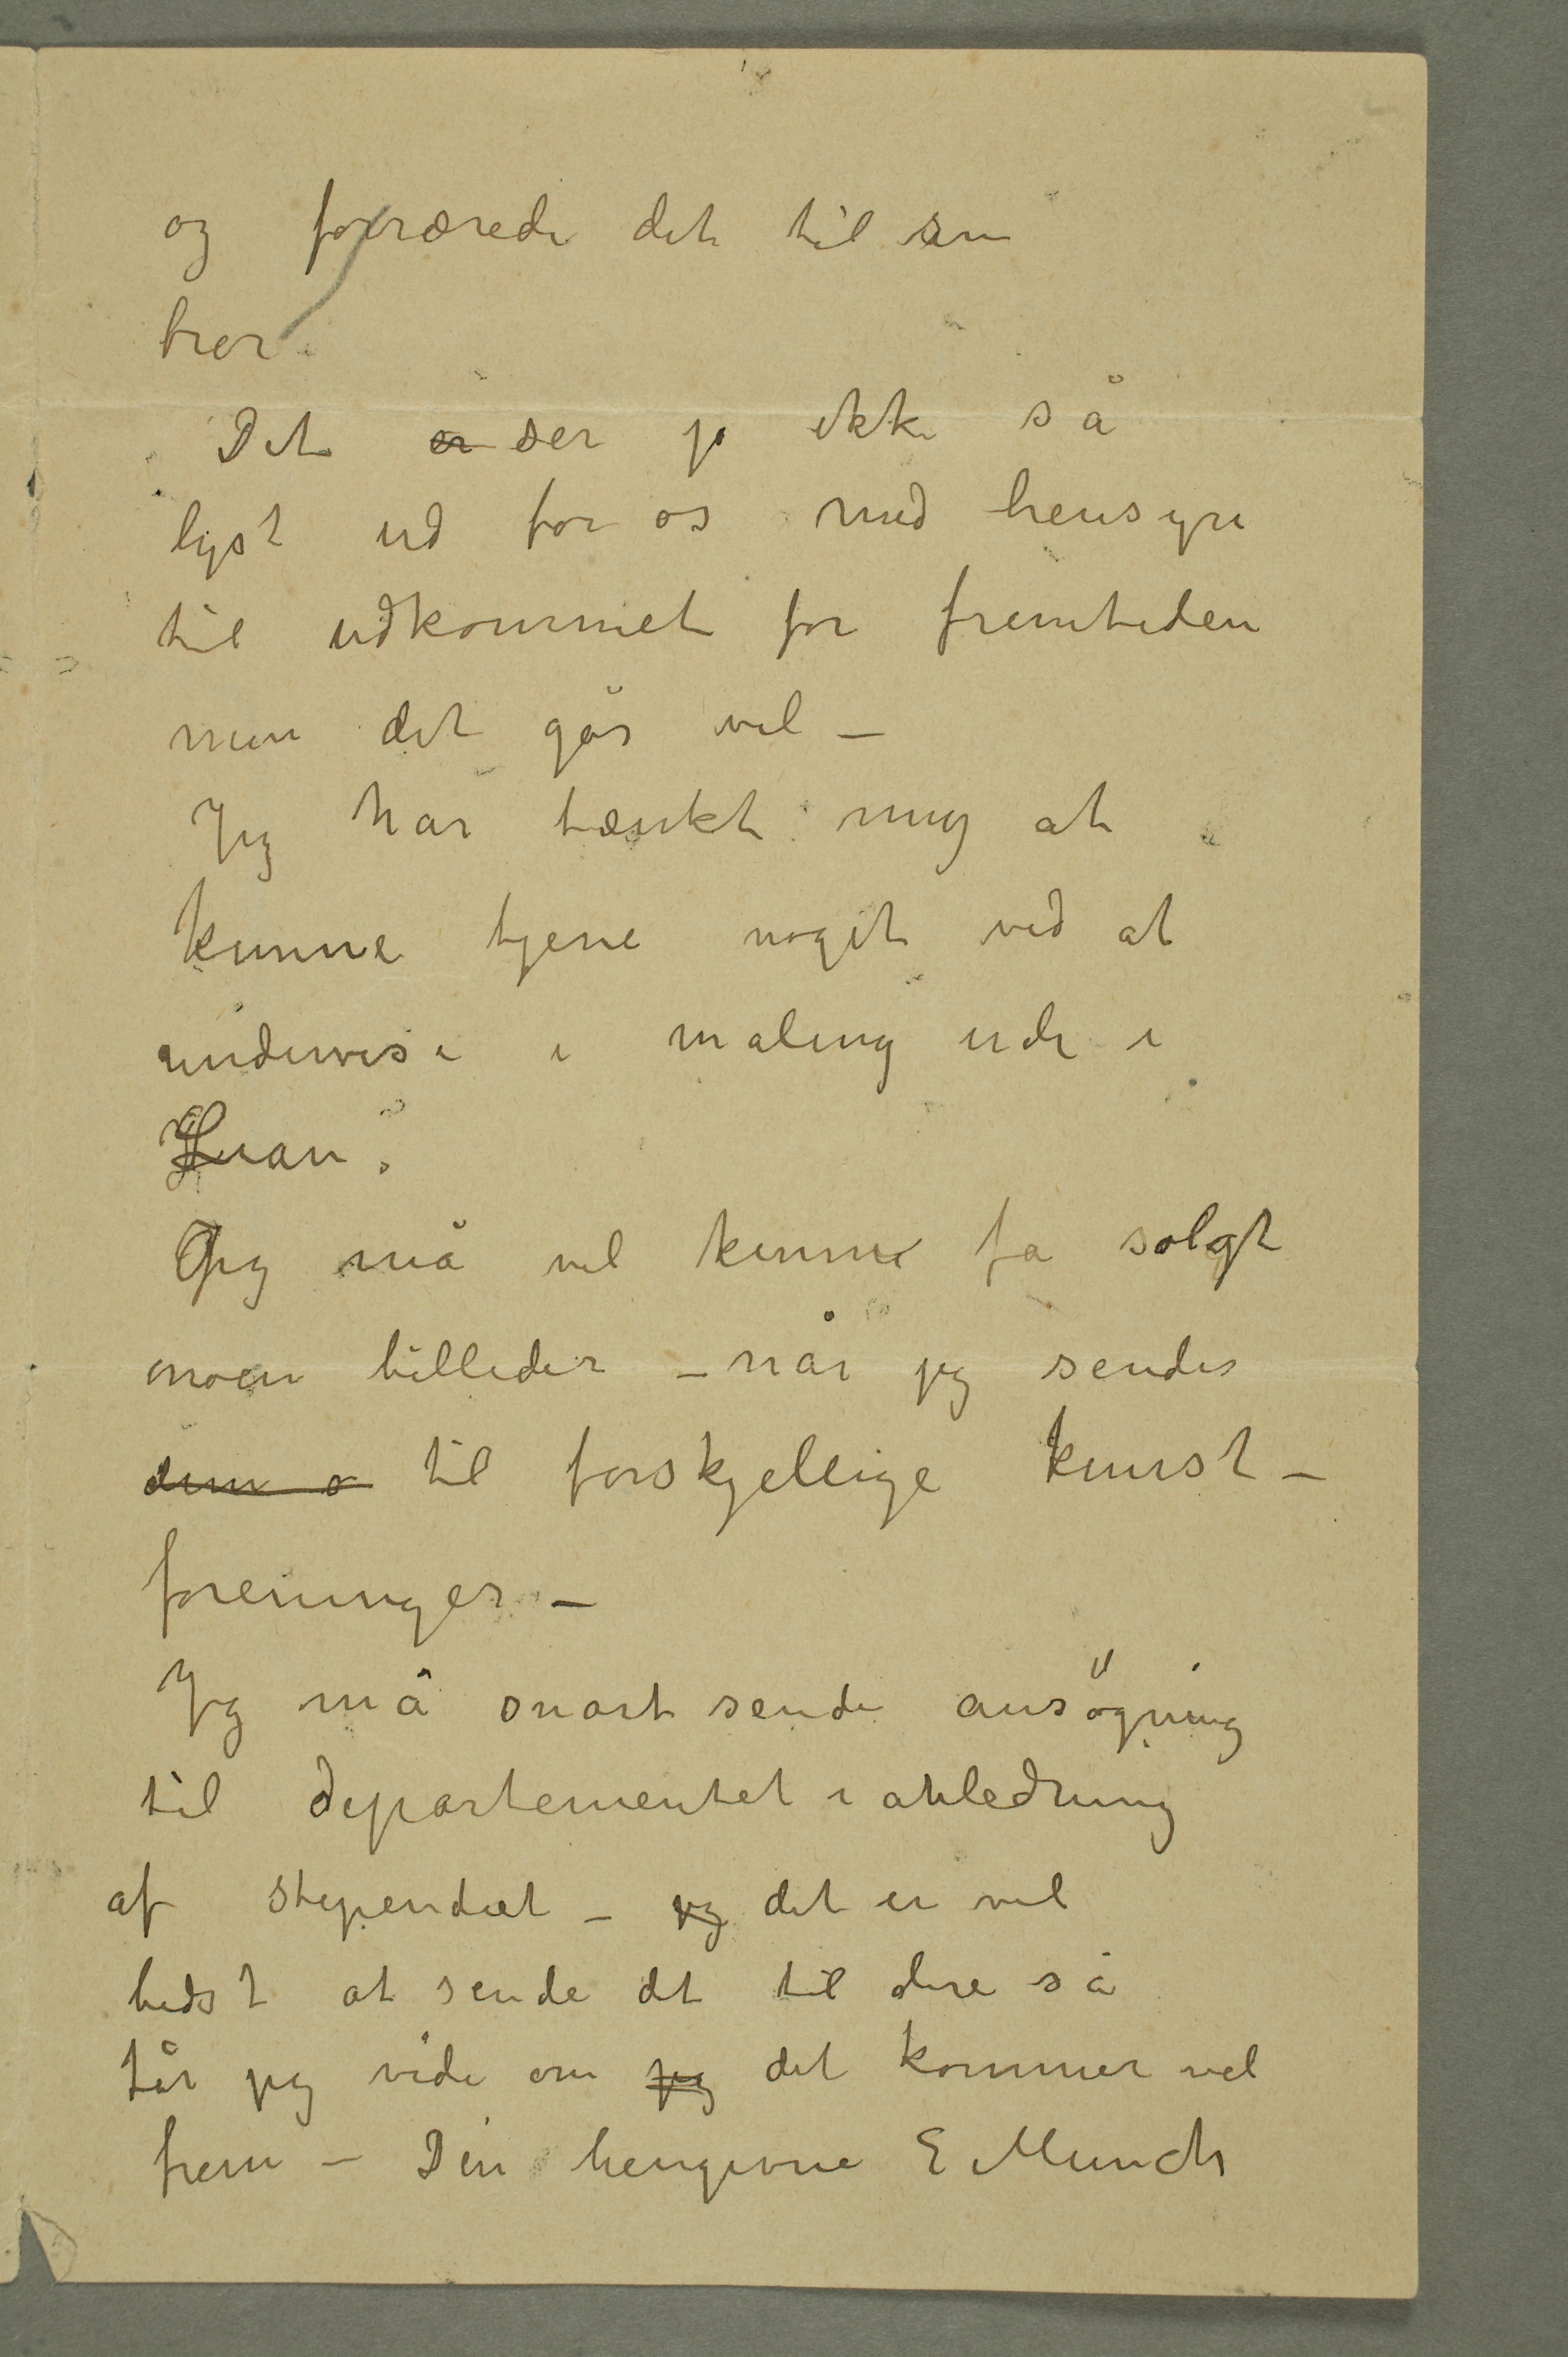 og forærede det til sin
bror.
Det er ser jo ikke så
lyst ud for os med hensyn
til udkommet for fremtiden
men det går vel –
Jeg har tænkt mig at
kunne tjene noget ved at
undervise i maling ude i
Jeg må vel kunne få solgt
noen billeder – når jeg sender
dem s til forskjellige kunst–
foreninger –
Jeg må snart sende ansögning
til departementet i anledning
af stipendiet – jeg det er vel
bedst at sende det til dere så
får jeg vide om jeg det kommer vel
frem – Din hengivne E Munch